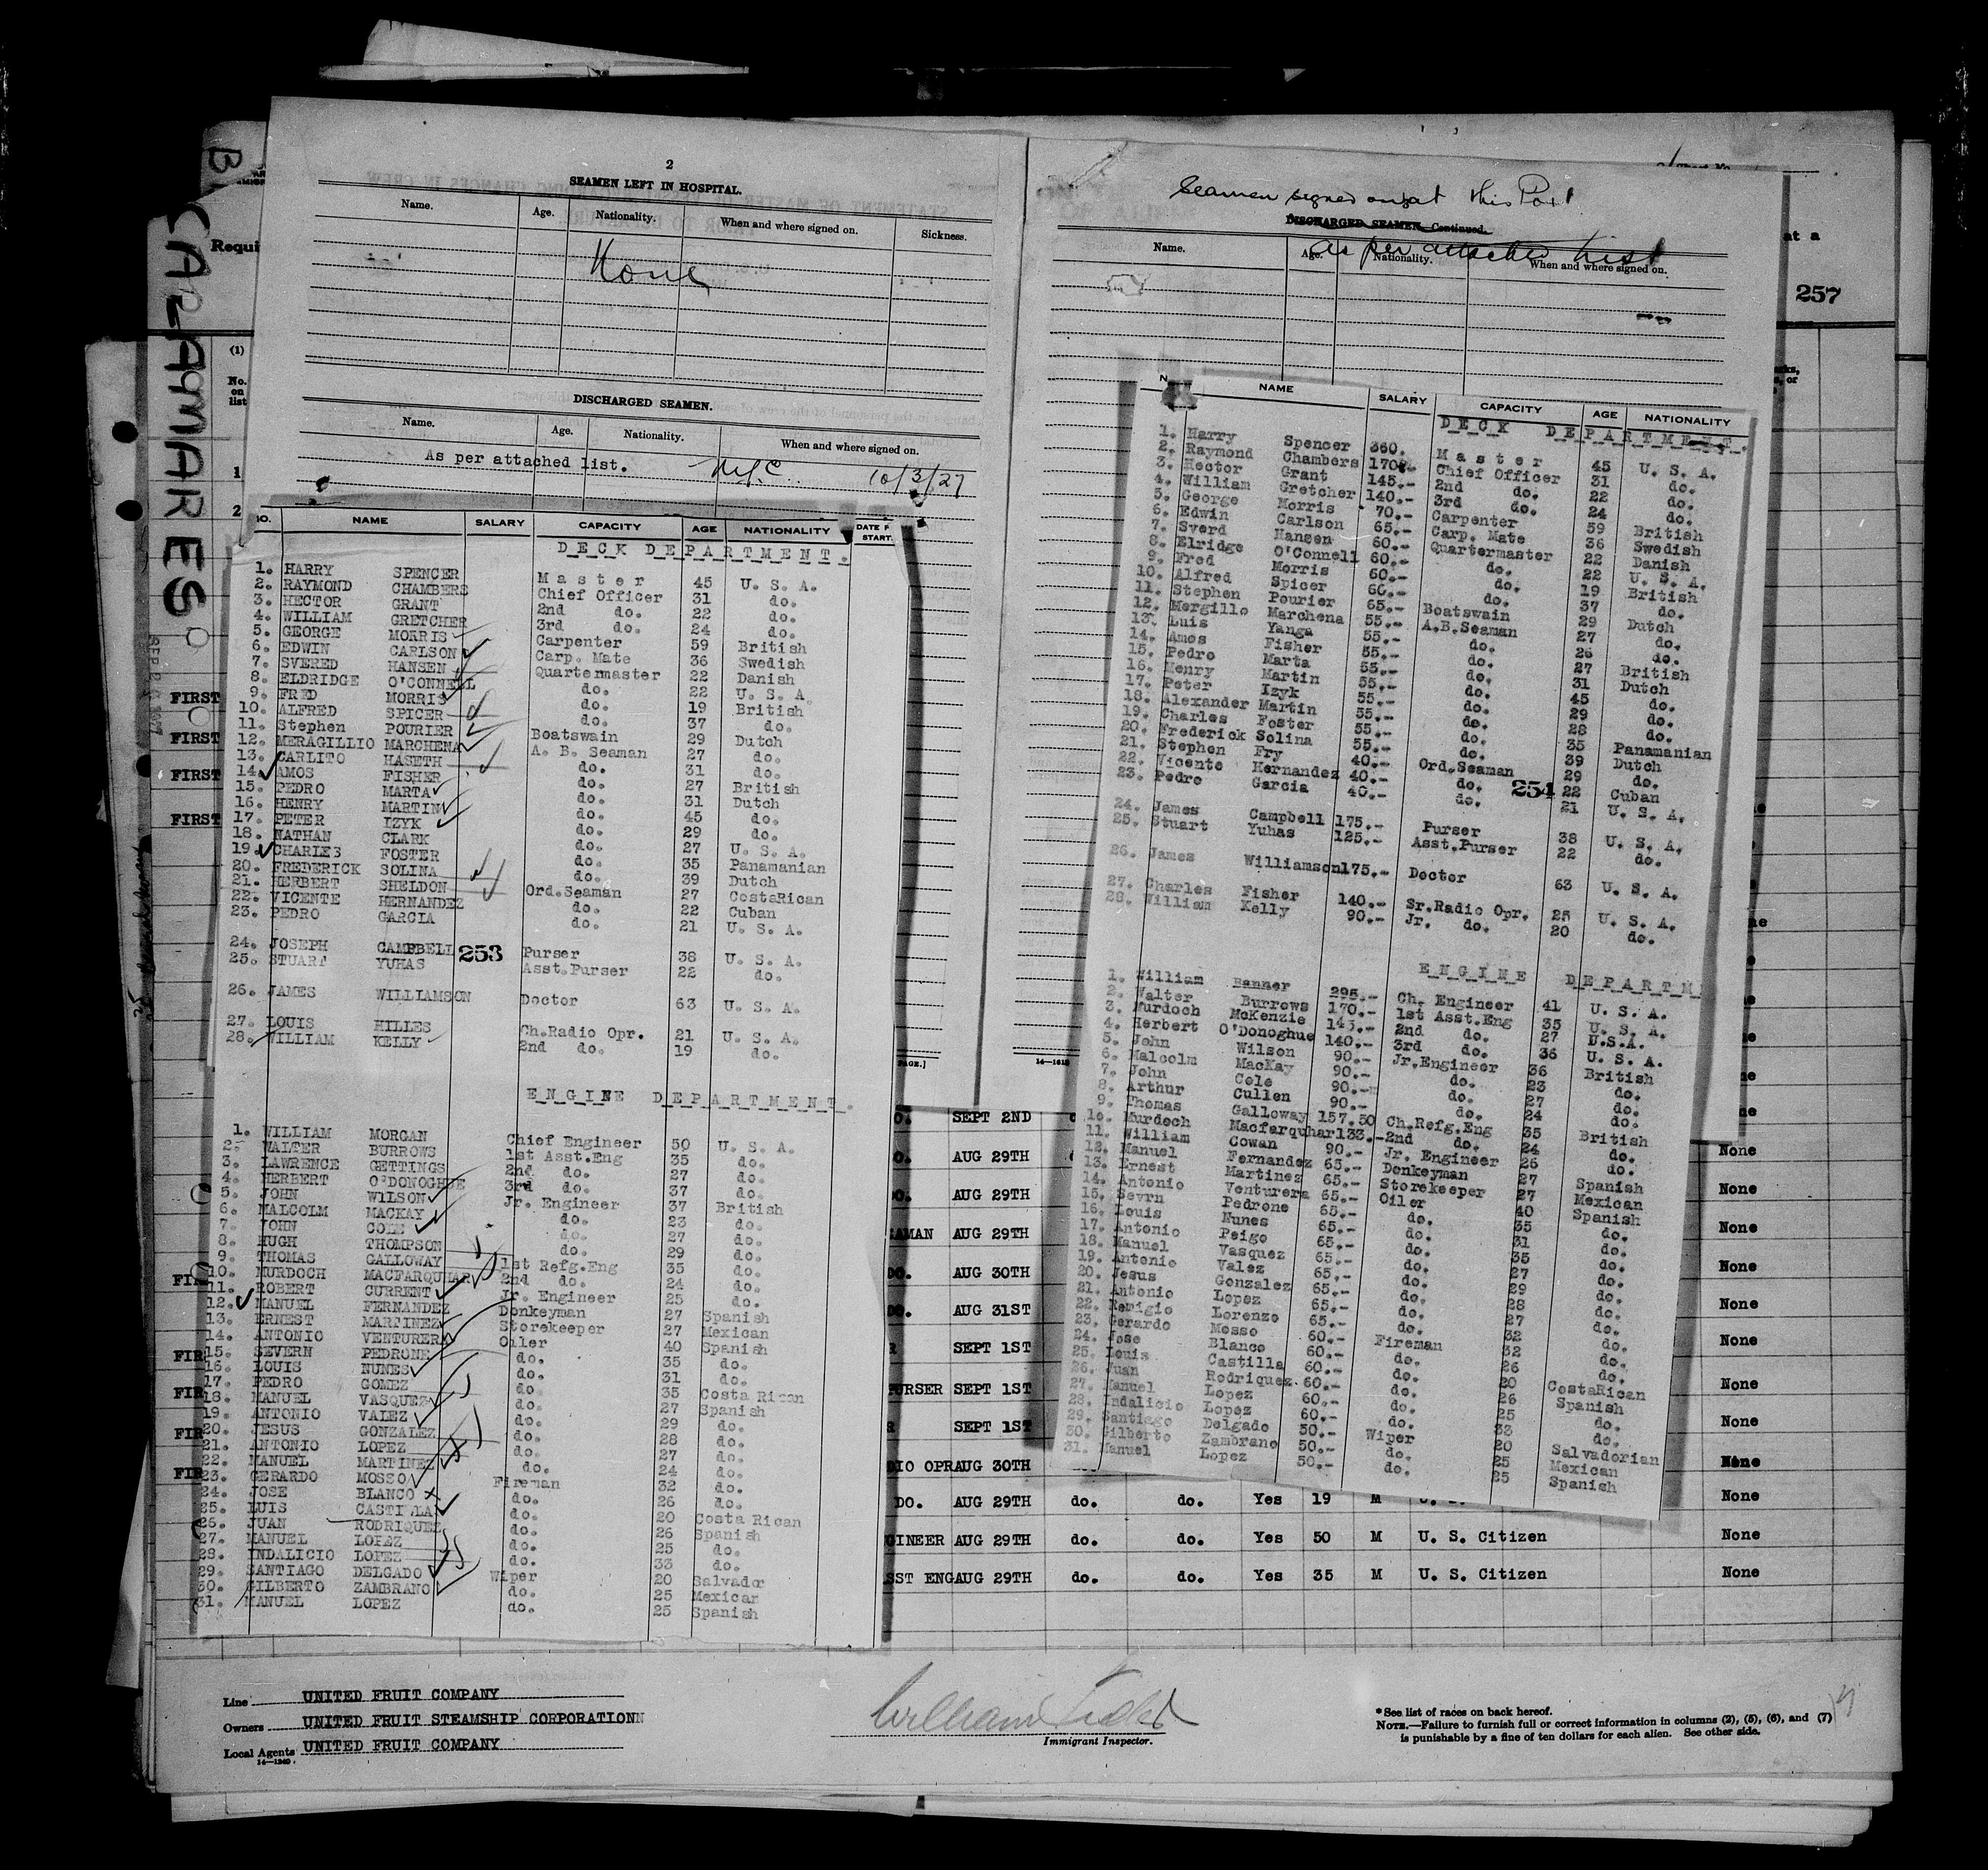 2
SEAMEN LEFT IN HOSPITAL.
Name. Age. Nationality. When and where signed on. Sickness.
None
DISCHARGED SEAMEN.
Name. Age. Nationality. When and where signed on.
As per attached list. N.Y.C. 10/3/27
NO. NAME SALARY CAPACITY AGE NATIONALITY DATE START
DECK DEPARTMENT.
1. HARRY SPENCER Master 45 U. S. A.
2. RAYMOND CHAMBERS Chief Officer 31 do.
3. HECTOR GRANT 2nd do. 22 do.
4. WILLIAM GRETCHER 3rd do. 24 do.
5. GEORGE MORRIS Carpenter 59 British
6. EDWIN CARLSON Carp. Mate 36 Swedish
7. SVERED HANSEN Quartermaster 22 Danish
8. ELDRIDGE O'CONNELL do. 22 U. S. A
9. FRED MORRIS do. 19 British
10. ALFRED SPICER do. 37 do.
11. Stephen POURIER Boatswain 29 Dutch
12. MERAGILLIO MARCHENA A. B. Seaman 27 do.
13. CARLITO HASETH do. 31 do.
14. AMOS FISHER do. 27 British
15. PEDRO MARTA do. 31 Dutch
16. HENRY MARTIN do. 45 do.
17. PETER IZYK do. 29 do.
18. NATHAN CLARK do. 27 U. S. A.
19. CHARLES FOSTER do. 35 Panamanian
20. FREDERICK SOLINA do. 39 Dutch
21. HERBERT SHELDON Ord.Seaman 27 CostaRican
22. VICENTE HERNANDEZ do. 22 Cuban
23. PEDRO GARCIA do. 21 U. S. A.
24. JOSEPH CAMPBELL 253 Purser 38 U. S. A.
25. STUART YUHAS Asst.Purser 22 do.
26. JAMES WILLIAMSON Doctor 63 U. S. A.
27. LOUIS HILLES Ch.Radio Opr. 21 U. S. A.
28. WILLIAM KELLY 2nd do. 19 do.
ENGINE DEPARTMENT.
1. WILLIAM MORGAN Chief Engineer 50 U. S. A.
2. WALTER BURROWS 1st Asst.Eng 35 do.
3. LAWRENCE GETTINGS 2nd do. 27 do.
4. HERBERT O'DONOGHUE 3rd do. 37 do.
5. JOHN WILSON Jr. Engineer 37 British
6. MALCOLM MACKAY do. 23 do.
7. JOHN COLE do. 27 do.
8. HUGH THOMPSON do. 29 do.
9. THOMAS GALLOWAY 1st Refg.Eng 35 do.
10. MURDOCH MACFARQUHAR 2nd do. 24 do.
11. ROBERT CURRENT Jr. Engineer 25 do.
12. MANUEL FERNANDEZ Donkeyman 27 Spanish
13. ERNEST MARTINEZ Storekeeper 27 Mexican
14. ANTONIO VENTURERA Oiler 40 Spanish
15. SEVERN PEDRONE do. 35 do.
16. LOUIS NUNES do. 31 do.
17. PEDRO GOMEZ do. 35 Costa Rican
18. MANUEL VASQUEZ do. 27 Spanish
19. ANTONIO VALEZ do. 29 do.
20. JESUS GONZALEZ do. 28 do.
21. ANTONIO LOPEZ do. 27 do.
22. MANUEL MARTINEZ do. 24 do.
23. GERARDO MOSSO Fireman 32 do.
24. JOSE BLANCO do. 26 do.
25. LUIS CASTILLA do. 20 Costa Rican
26. JUAN RODRIQUEZ do. 26 Spanish
27. MANUEL LOPEZ do. 25 do.
28. INDALICIO LOPEZ do. 33 do.
29. SANTIAGO DELGADO Wiper 20 Salvador
30. GILBERTO ZAMBRANO do. 25 Mexican
31. MANUEL LOPEZ do. 25 Spanish
Seamen signed on at this Port
DISCHARGED SEAMEN—Continued.
as per attached list
Name. Age. Nationality. When and where signed on.
257
NAME SALARY CAPACITY AGE NATIONALITY
DECK DEPARTMENT.
1. Harry Spencer 360. Master 45 U. S. A.
2. Raymond Chambers 170.- Chief Officer 31 do.
3. Hector Grant 145.- 2nd do. 22 do.
4. William Gretcher 140.- 3rd do. 24 do.
5. George Morris 70.- Carpenter 59 British
6. Edwin Carlson 65.- Carp. Mate 36 Swedish
7. Sverd Hansen 60.- Quartermaster 22 Danish
8. Elridge O'Connell 60.- do. 22 U. S. A.
9. Fred Morris 60.- do. 19 British
10. Alfred Spicer 60.- do. 37 do.
11. Stephen Pourier 65.- Boatswain 29 Dutch
12. Mergillo Marchena 55.- A.B.Seaman 27 do.
13. Luis Yanga 55.- do. 26 do.
14. Amos Fisher 55.- do. 27 British
15. Pedro Marta 55.- do. 31 Dutch
16. Henry Martin 55.- do. 45 do.
17. Peter Izyk 55.- do. 29 do.
18. Alexander Martin 55.- do. 28 do.
19. Charles Foster 55.- do. 35 Panamanian
20. Frederick Solina 55.- do. 39 Dutch
21. Stephen Fry 40.- Ord.Seaman 29 do.
22. Vicente Hernandez 40.- do. 254 22 Cuban
23. Pedro Garcia 40.- do. 21 U. S. A.
24. James Campbell 175.- Purser 38 U. S. A.
25. Stuart Yuhas 125.- Asst.Purser 22 do.
26. James Williamson 175.- Doctor 63 U. S. A.
27. Charles Fisher 140.- Sr.Radio Opr. 25 U. S. A.
28. William Kelly 90.- Jr. do. 20 do.
ENGINE DEPARTM
1. William Banner 295.- Ch. Engineer 41 U. S. A.
2. Walter Burrows 170.- 1st Asst.Eng 35 U. S. A.
3. Murdoch McKenzie 145.- 2nd do. 27 U.S.A.
4. Herbert O'Donoghue 140.- 3rd do. 36 U. S. A.
5. John Wilson 90.- Jr.Engineer 36 British
6. Malcolm MacKay 90.- do. 23 do.
7. John Cole 90.- do. 27 do.
8. Arthur Cullen 90.- do. 24 do.
9. Thomas Galloway 157.50 Ch.Refg.Eng 35 British
10. Murdoch Macfarquhar 133.- 2nd do. 24 do.
11. William Cowan 90.- Jr. Engineer 26 do.
12. Manuel Fernandez 65.- Donkeyman 27 Spanish
13. Ernest Martinez 65.- Storekeeper 27 Mexican
14. Antonio Venturera 65.- Oiler 40 Spanish
15. Sevrn Pedrone 65.- do. 35 do.
16. Louis Nunes 65.- do. 31 do.
17. Antonio Peigo 65.- do. 35 do.
18. Manuel Vasquez 65.- do. 27 do.
19. Antonio Valez 65.- do. 29 do.
20. Jesus Gonzalez 65.- do. 28 do.
21. Antonio Lopez 65.- do. 27 do.
22. Remigio Lorenzo 65.- do. 32 do.
23. Gerardo Mosso 60.- Fireman 32 do.
24. Jose Blanco 60.- do. 26 do.
25. Louis Castilla 60.- do. 20 CostaRican
26. Juan Rodriquez 60.- do. 26 Spanish
27. Manuel Lopez 60.- do. 25 do.
28. Indalicio Lopez 60.- do. 33 do.
29. Santiago Delgado 50.- Wiper 20 Salvadorian
30. Gilberto Zambrano 50.- do. 25 Mexican
31. Manuel Lopez 50.- do. 25 Spanish
CALAMARES
Requi
(1)
No. on list
1
2
FIRST
FIRST
FIRST
FIRST
FIR
FIR
FIR
FIR
FIR
SEPT 2ND
AUG 29TH None
AUG 29TH None
AMAN AUG 29TH None
DO. AUG 30TH None
DO. AUG 31ST None
SEPT 1ST None
PURSER SEPT 1ST None
SEPT 1ST None
DIO OPR AUG 30TH None
DO. AUG 29TH do. do. Yes 19 M None
GINEER AUG 29TH do. do. Yes 50 M U. S. Citizen None
SST ENG AUG 29TH do. do. Yes 35 M U. S. Citizen None
Line UNITED FRUIT COMPANY
Owners UNITED FRUIT STEAMSHIP CORPORATIONN
Local Agents UNITED FRUIT COMPANY
14—1240
Immigrant Inspector.
*See list of races on back hereof.
NOTE.—Failure to furnish full or correct information in columns (2), (5), (6), and (7)
is punishable by a fine of ten dollars for each alien. See other side.